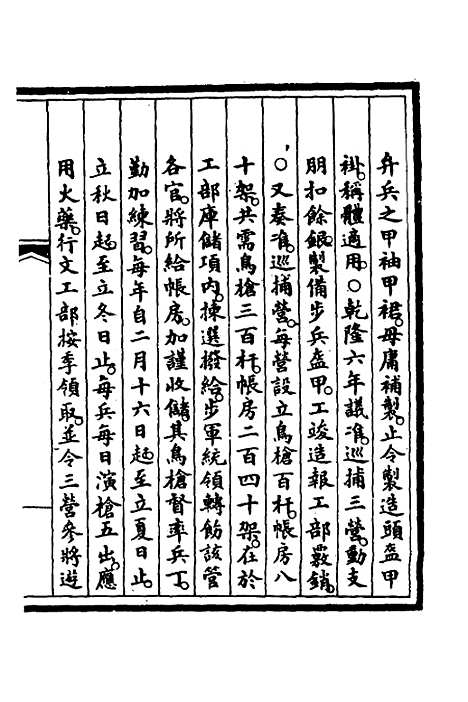 弁兵之甲袖甲裙。毋庸補製。止令製造頭盔甲
褂。稱體適用。○乾隆六年議准。巡捕三營。動支
朋扣餘銀。製備步兵盔甲。工竣造報工部覈銷。
○又奏准。巡捕營。每營設立鳥槍百杆。帳房八
十架。共需鳥槍三百杆。帳房二百四十架。在於
工部庫儲項內。揀選撥給。步軍統領轉飭該管
各官。將所給帳房。加謹收儲。其鳥槍督率兵丁。
勤加練習。每年自二月十六日起至立夏日止。
立秋日起至立冬日止。每兵每日演槍五出。應
用火藥。行文工部按季領取。並令三營參將遊